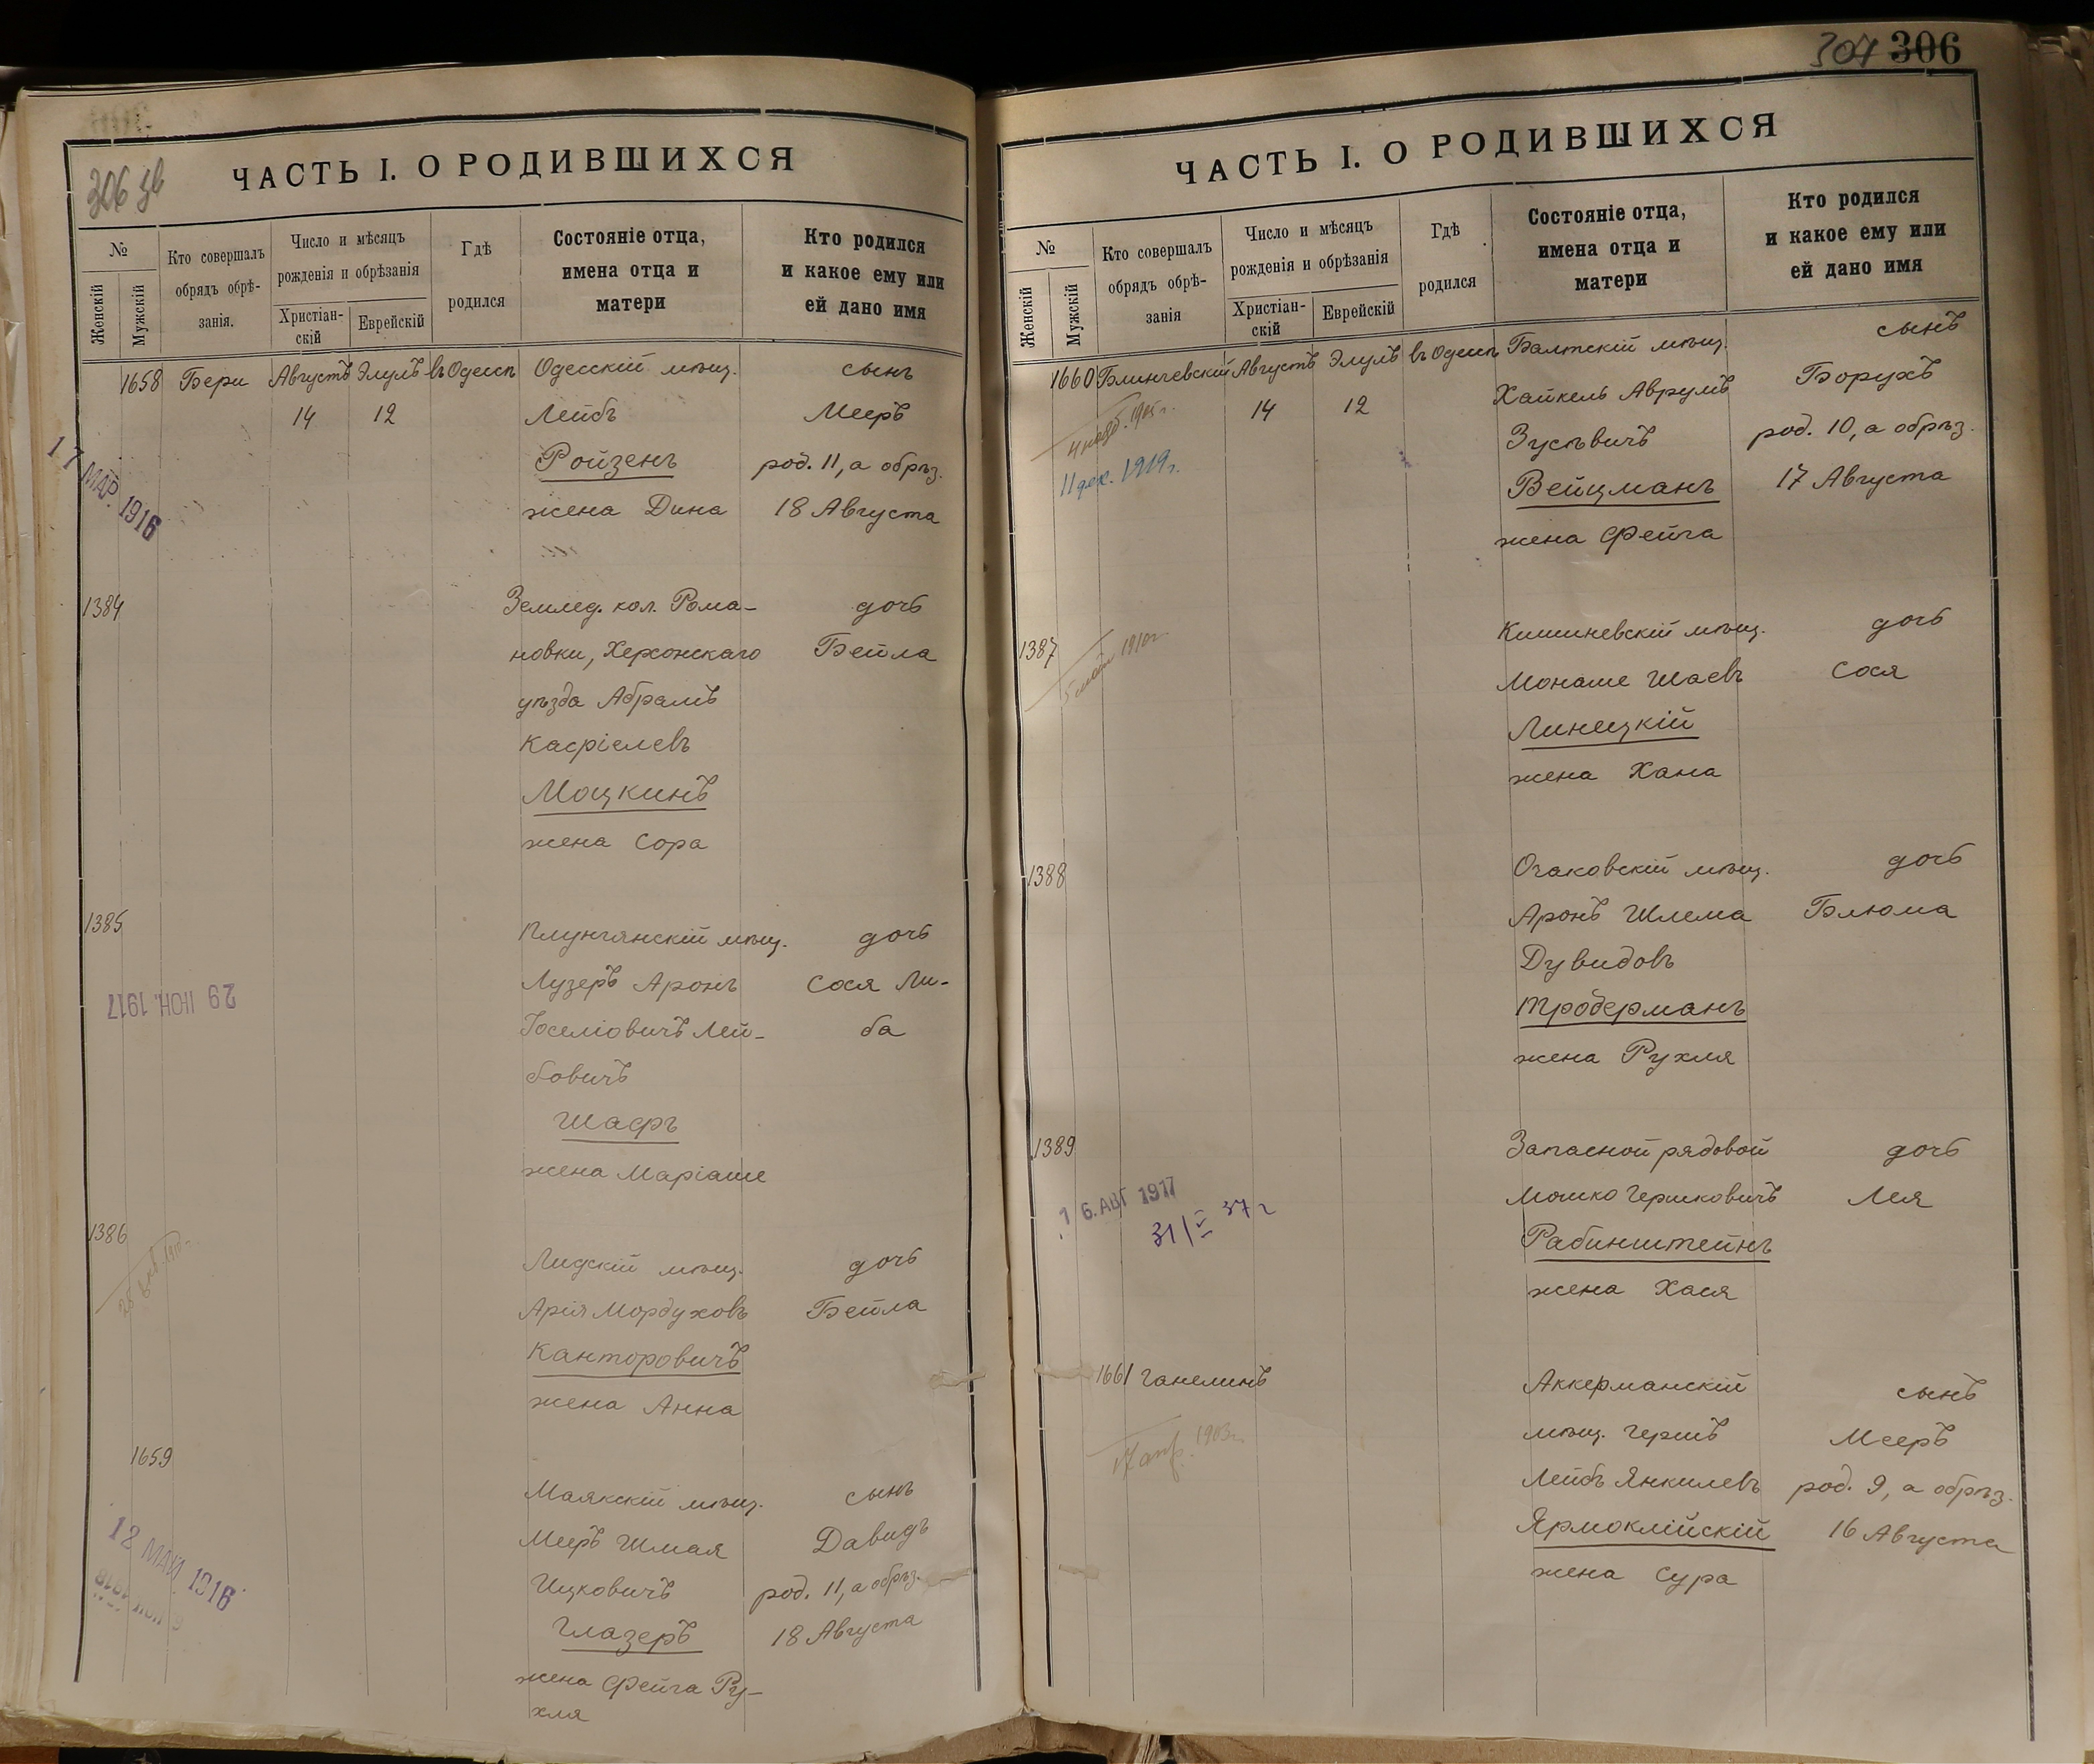 306 зв
ЧАСТЬ I. О РОДИВШИХСЯ
№
Женскій
Мужскій
Кто совершалъ
обрядъ обрѣ-
занія.
Число и мѣсяцъ
рожденія и обрѣзанія
Христіан-
скій
Еврейскій
Гдѣ
родился
Состояніе отца,
имена отца и
матери
Кто родился
и какое ему или
ей дано имя
1658 Бери Августъ Элулъ въ Одессѣ Одесскій мѣщ. сынъ
14 12 Лейбъ Мееръ
Ройзенъ род. 11, а обрѣз.
жена Дина 18 Августа
17 МАР. 1916
1384 Землед. кол. Рома- дочь
новки, Херсонскаго Бейла
уѣзда Абрамъ
Касріелевъ
Моцкинъ
жена Сора
1385 Плунгянскій мѣщ. дочь
Лузеръ Аронъ Сося Ли-
29 ІЮН. 1917
Іоселіовичъ Лей- ба
бовичъ
Шафъ
жена Маріаше
1386 Лидскій мѣщ. дочь
Арія Мордуховъ Бейла
Канторовичъ
жена Анна
1659 Маякскій мѣщ. сынъ
Мееръ Шмая Давидъ
12 МАЙ 1916
Ицковичъ род. 11, а обрѣз.
Глазеръ 18 Августа
жена Фейга Ру-
хля
307 306
ЧАСТЬ I. О РОДИВШИХСЯ
№
Женскій
Мужскій
Кто совершалъ
обрядъ обрѣ-
занія
Число и мѣсяцъ
рожденія и обрѣзанія
Христіан-
скій
Еврейскій
Гдѣ
родился
Состояніе отца,
имена отца и
матери
Кто родился
и какое ему или
ей дано имя
1660 Блинчевскій Августъ Элулъ въ Одессѣ Балтскій мѣщ. сынъ
14 12 Хайкель Аврумъ Борухъ
1905 г.
Зусьвичъ род. 10, а обрѣз.
11 дек. 1919 г.
Вейцманъ 17 Августа
жена Фейга
1387 Кишиневскій мѣщ. дочь
1910 г.
Монаше Шаевъ Сося
Линецкій
жена Хана
1388 Очаковскій мѣщ. дочь
Аронъ Шлема Блюма
Дувидовъ
Троберманъ
жена Рухля
1389 Запасной рядовой дочь
Мошко Гершковичъ Лея
16. АВГ 1917
31/V 37 г
Рабинштейнъ
жена Хася
1661 Ганелинъ Аккерманскій сынъ
мѣщ. Гершъ Мееръ
17 апр. 1903 г.
Лейбъ Янкилевъ род. 9, а обрѣз.
Ярмоклійскій 16 Августа
жена Сура